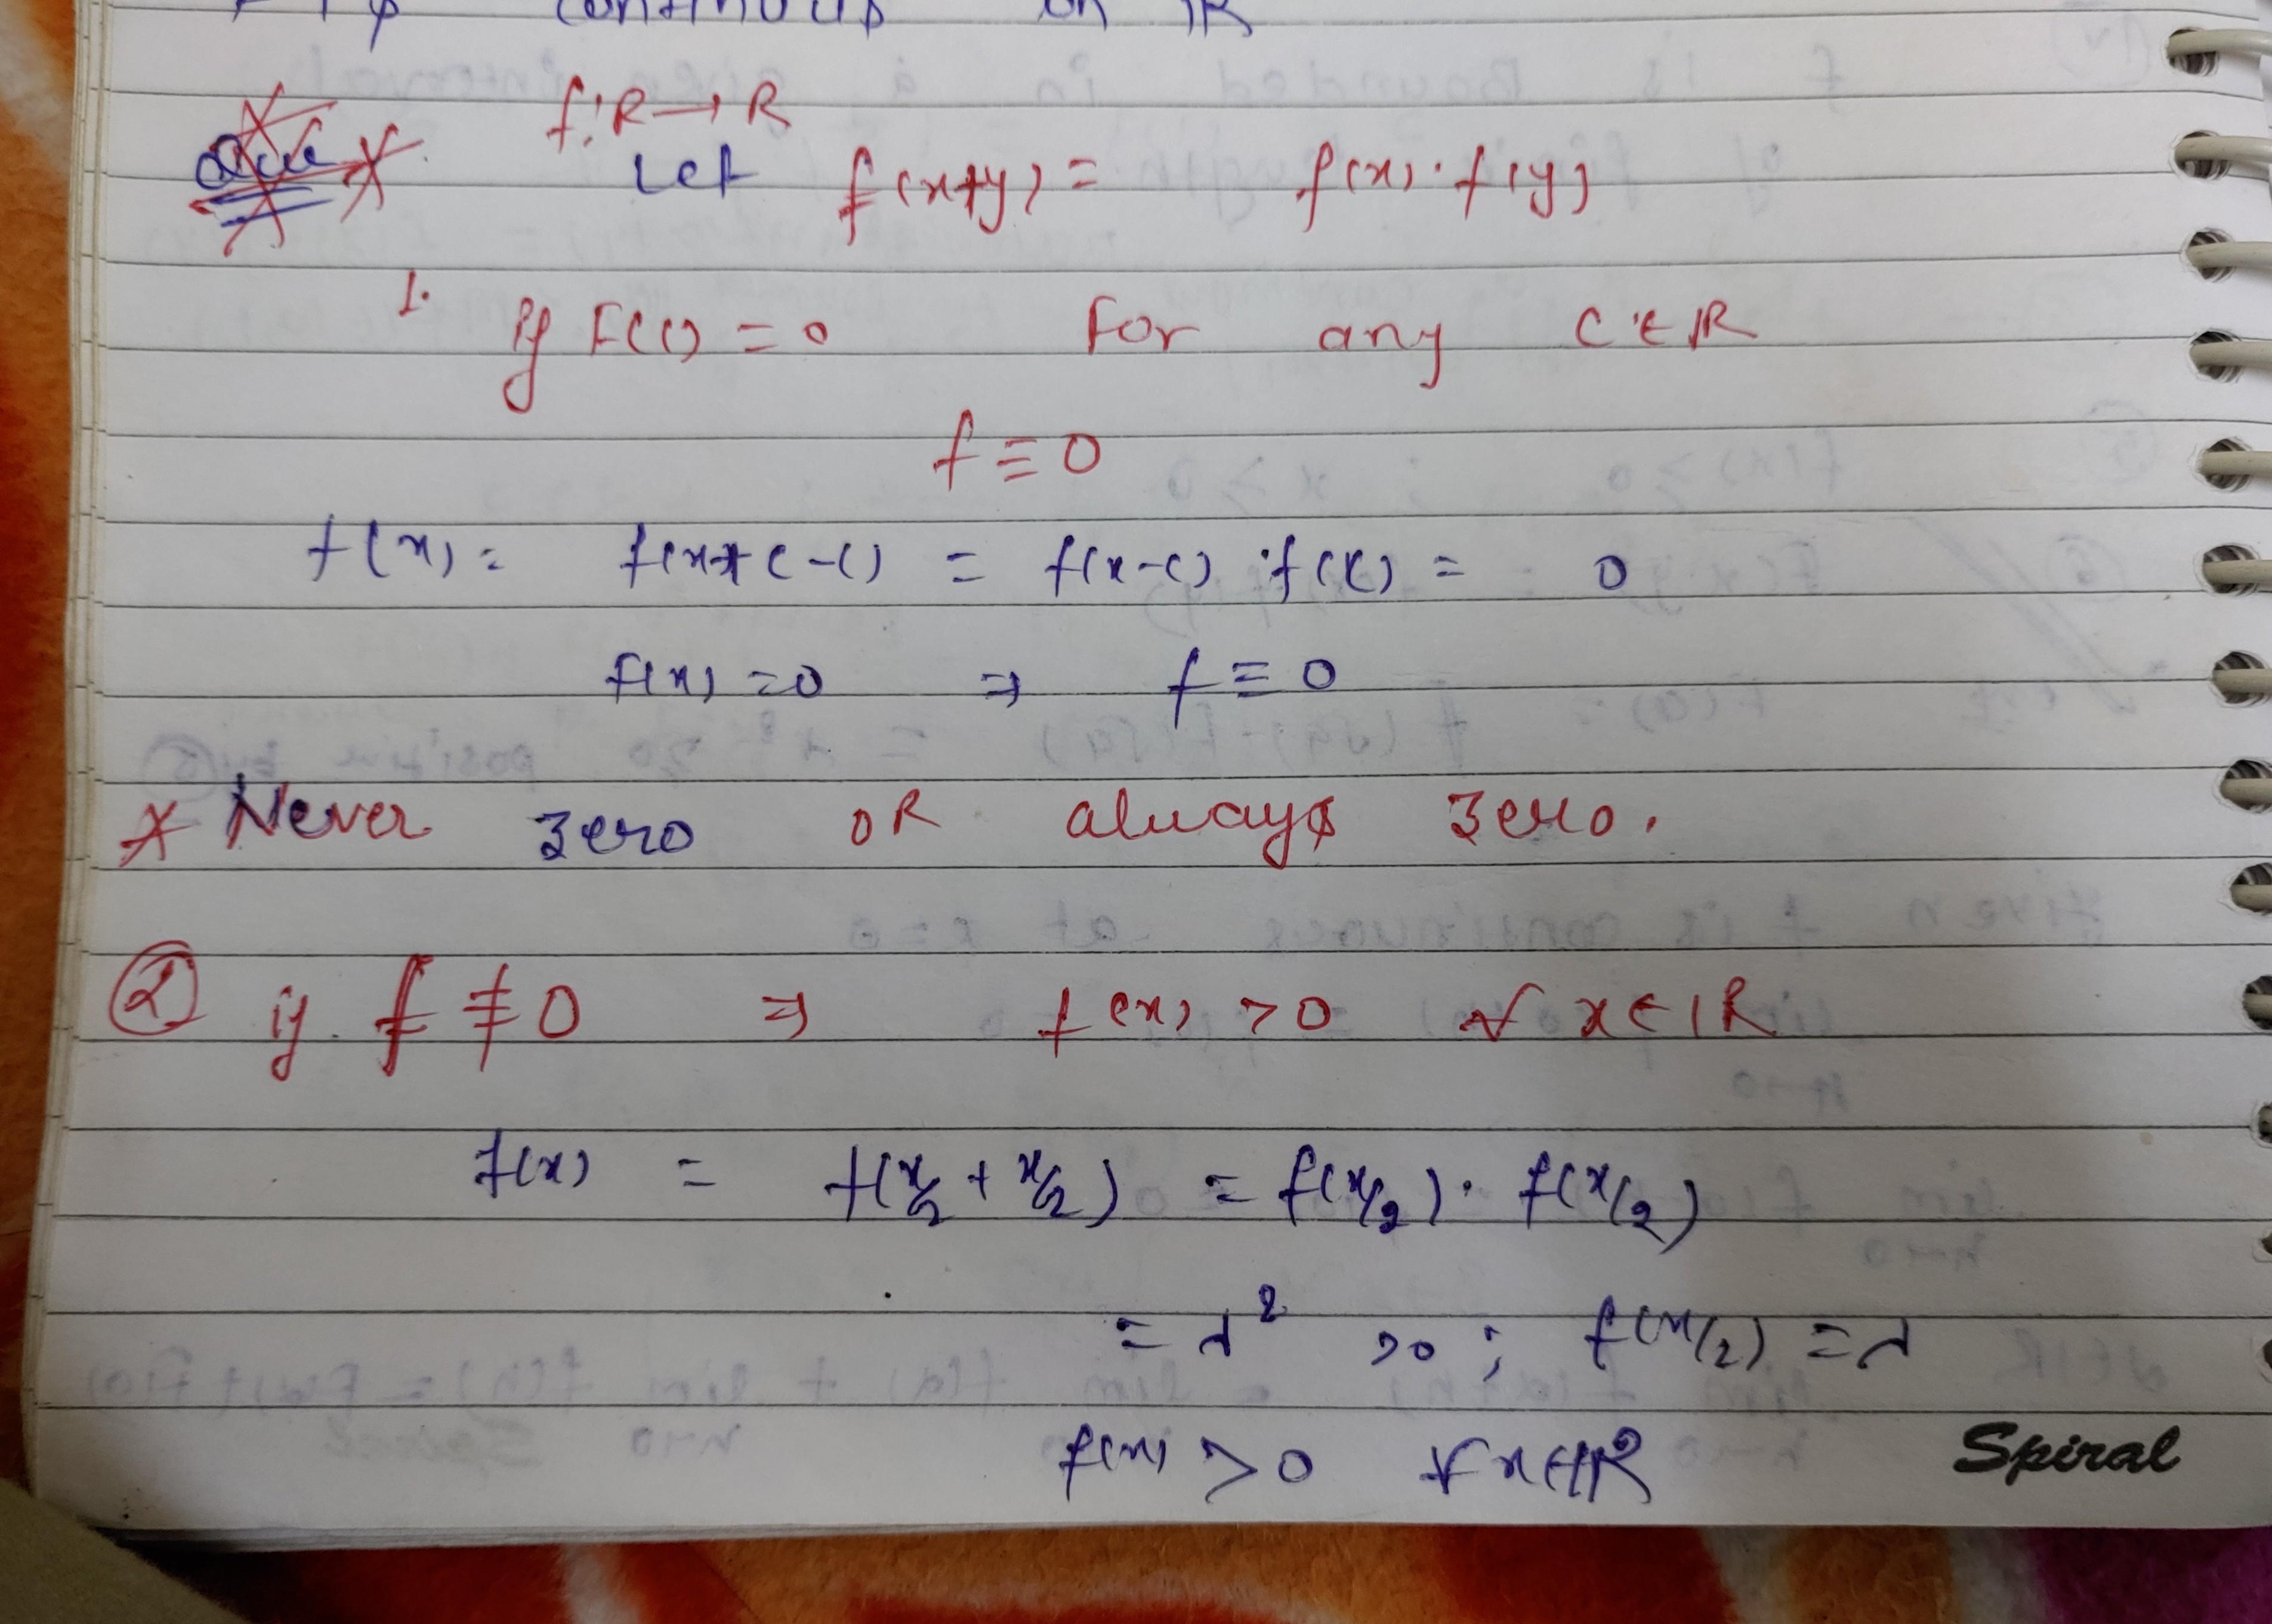 continuous on IR
Que f: R → R
Let f(x+y) = f(x) · f(y)
1. if F(c) = 0 For any C ∈ IR
f ≡ 0
f(x) = f(x+c-c) = f(x-c) · f(c) = 0
f(x) = 0 ⇒ f ≡ 0
* Never zero OR always zero.
② if f ≢ 0 ⇒ f(x) > 0 ∀ x ∈ IR
f(x) = f(x/2 + x/2) = f(x/2) · f(x/2)
= λ² > 0 ; f(x/2) = λ
f(x) > 0 ∀ x ∈ IR
Spiral